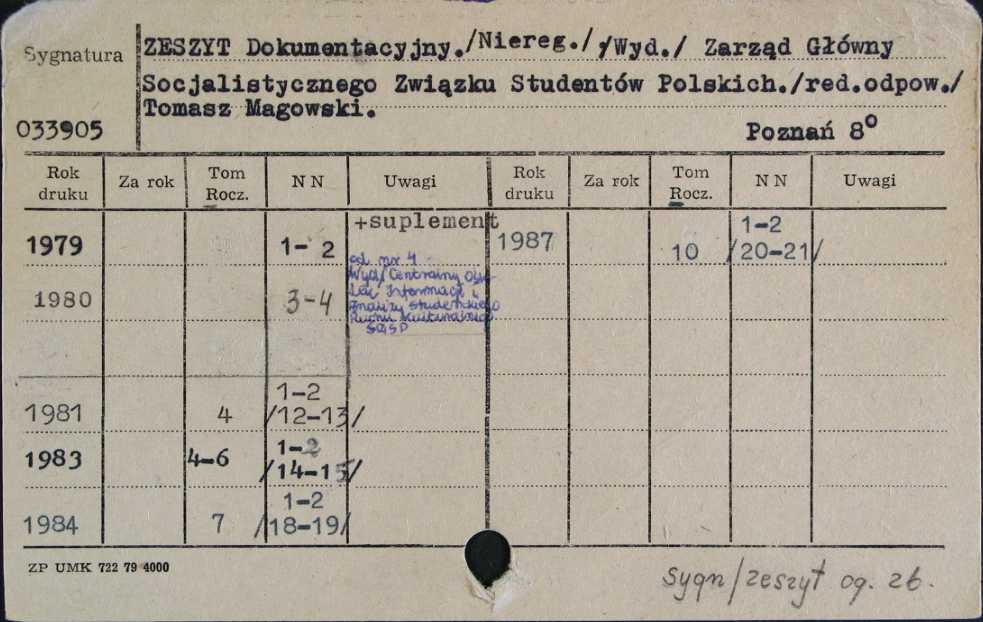 Sygnatura
ZESZYT Dokumentacyjny./Niereg./ /Wyd./ Zarząd Główny
Socjalistycznego Związku Studentów Polskich./red.odpow./
Tomasz Magowski.
033905
Poznań 8°
Rok druku Za rok Tom Rocz. N N Uwagi Rok druku Za rok Tom Rocz. N N Uwagi
1979 1-2 +suplement 1987 10 1-2 /20-21/
od nr 4
Wyd/ Centralny
Informacji i
Analizy studenckiego
Ruchu
1980 3-4
1981 4 1-2 /12-13/
1983 4-6 1-2 /14-15/
1984 7 1-2 /18-19/
ZP UMK 722 79 4000
sygn/zeszyt og. 26.